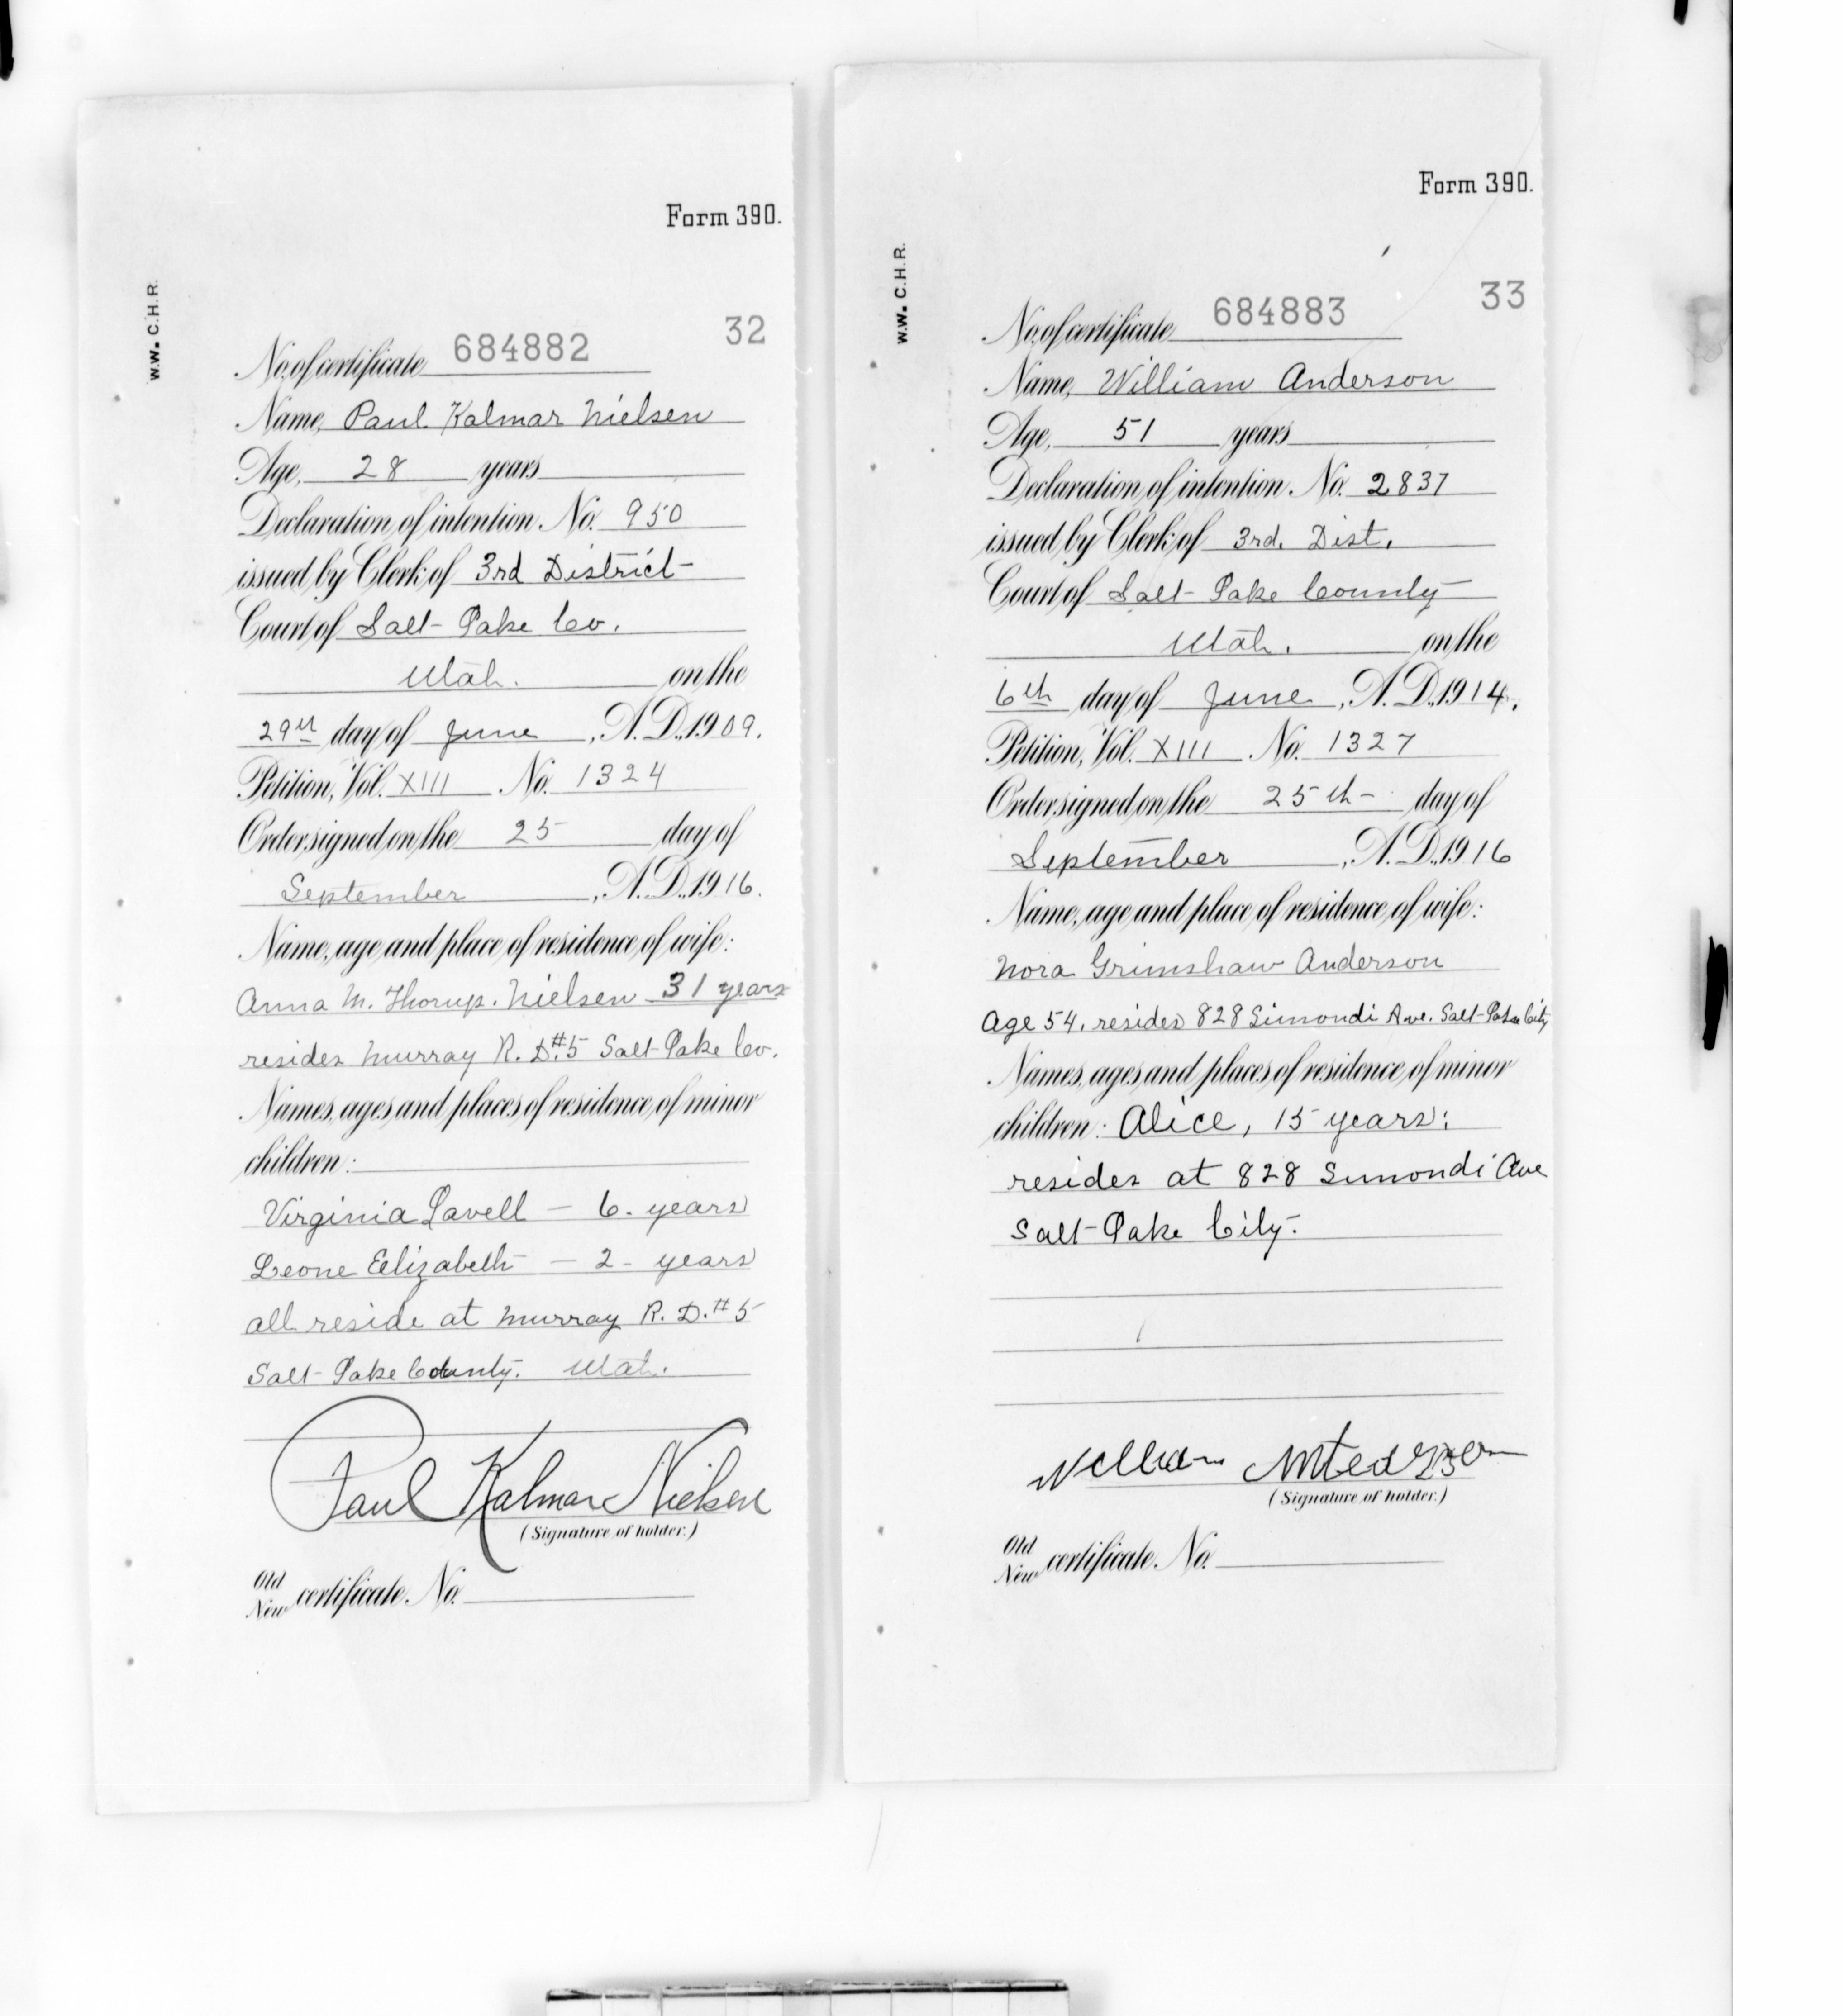 Form 390.
W.W. C.H.R.
32
No. of certificate 684882
Name, Paul Kalmar Nielsen
Age, 28 years
Declaration of intention No. 950
issued by Clerk of 3rd District
Court of Salt Lake Co.
Utah. on the
29th day of June, A.D. 1909.
Petition, Vol. XIII No. 1324
Order signed on the 25 day of
September, A.D. 1916.
Name, age and place of residence of wife:
Anna M. Thorup. Nielsen 31 years
resides Murray R. D. #5 Salt Lake Co.
Names, ages and places of residence of minor
children:
Virginia Lavell - 6. years
Leone Elizabeth - 2 - years
all reside at Murray R. D. #5
Salt Lake County. Utah.
Paul Kalmar Nielsen
(Signature of holder.)
Old
New certificate No.
Form 390.
W.W. C.H.R.
33
No. of certificate 684883
Name, William Anderson
Age, 51 years
Declaration of intention No. 2837
issued by Clerk of 3rd. Dist.
Court of Salt Lake County
Utah. on the
6th day of June, A.D. 1914.
Petition, Vol. XIII No. 1327
Order signed on the 25th day of
September, A.D. 1916
Name, age and place of residence of wife:
Nora Grimshaw Anderson
Age 54. resides 828 Simondi Ave. Salt Lake City
Names, ages and places of residence of minor
children: Alice, 15 years;
resides at 828 Simondi Ave
Salt Lake City.
William
(Signature of holder.)
Old
New certificate No.